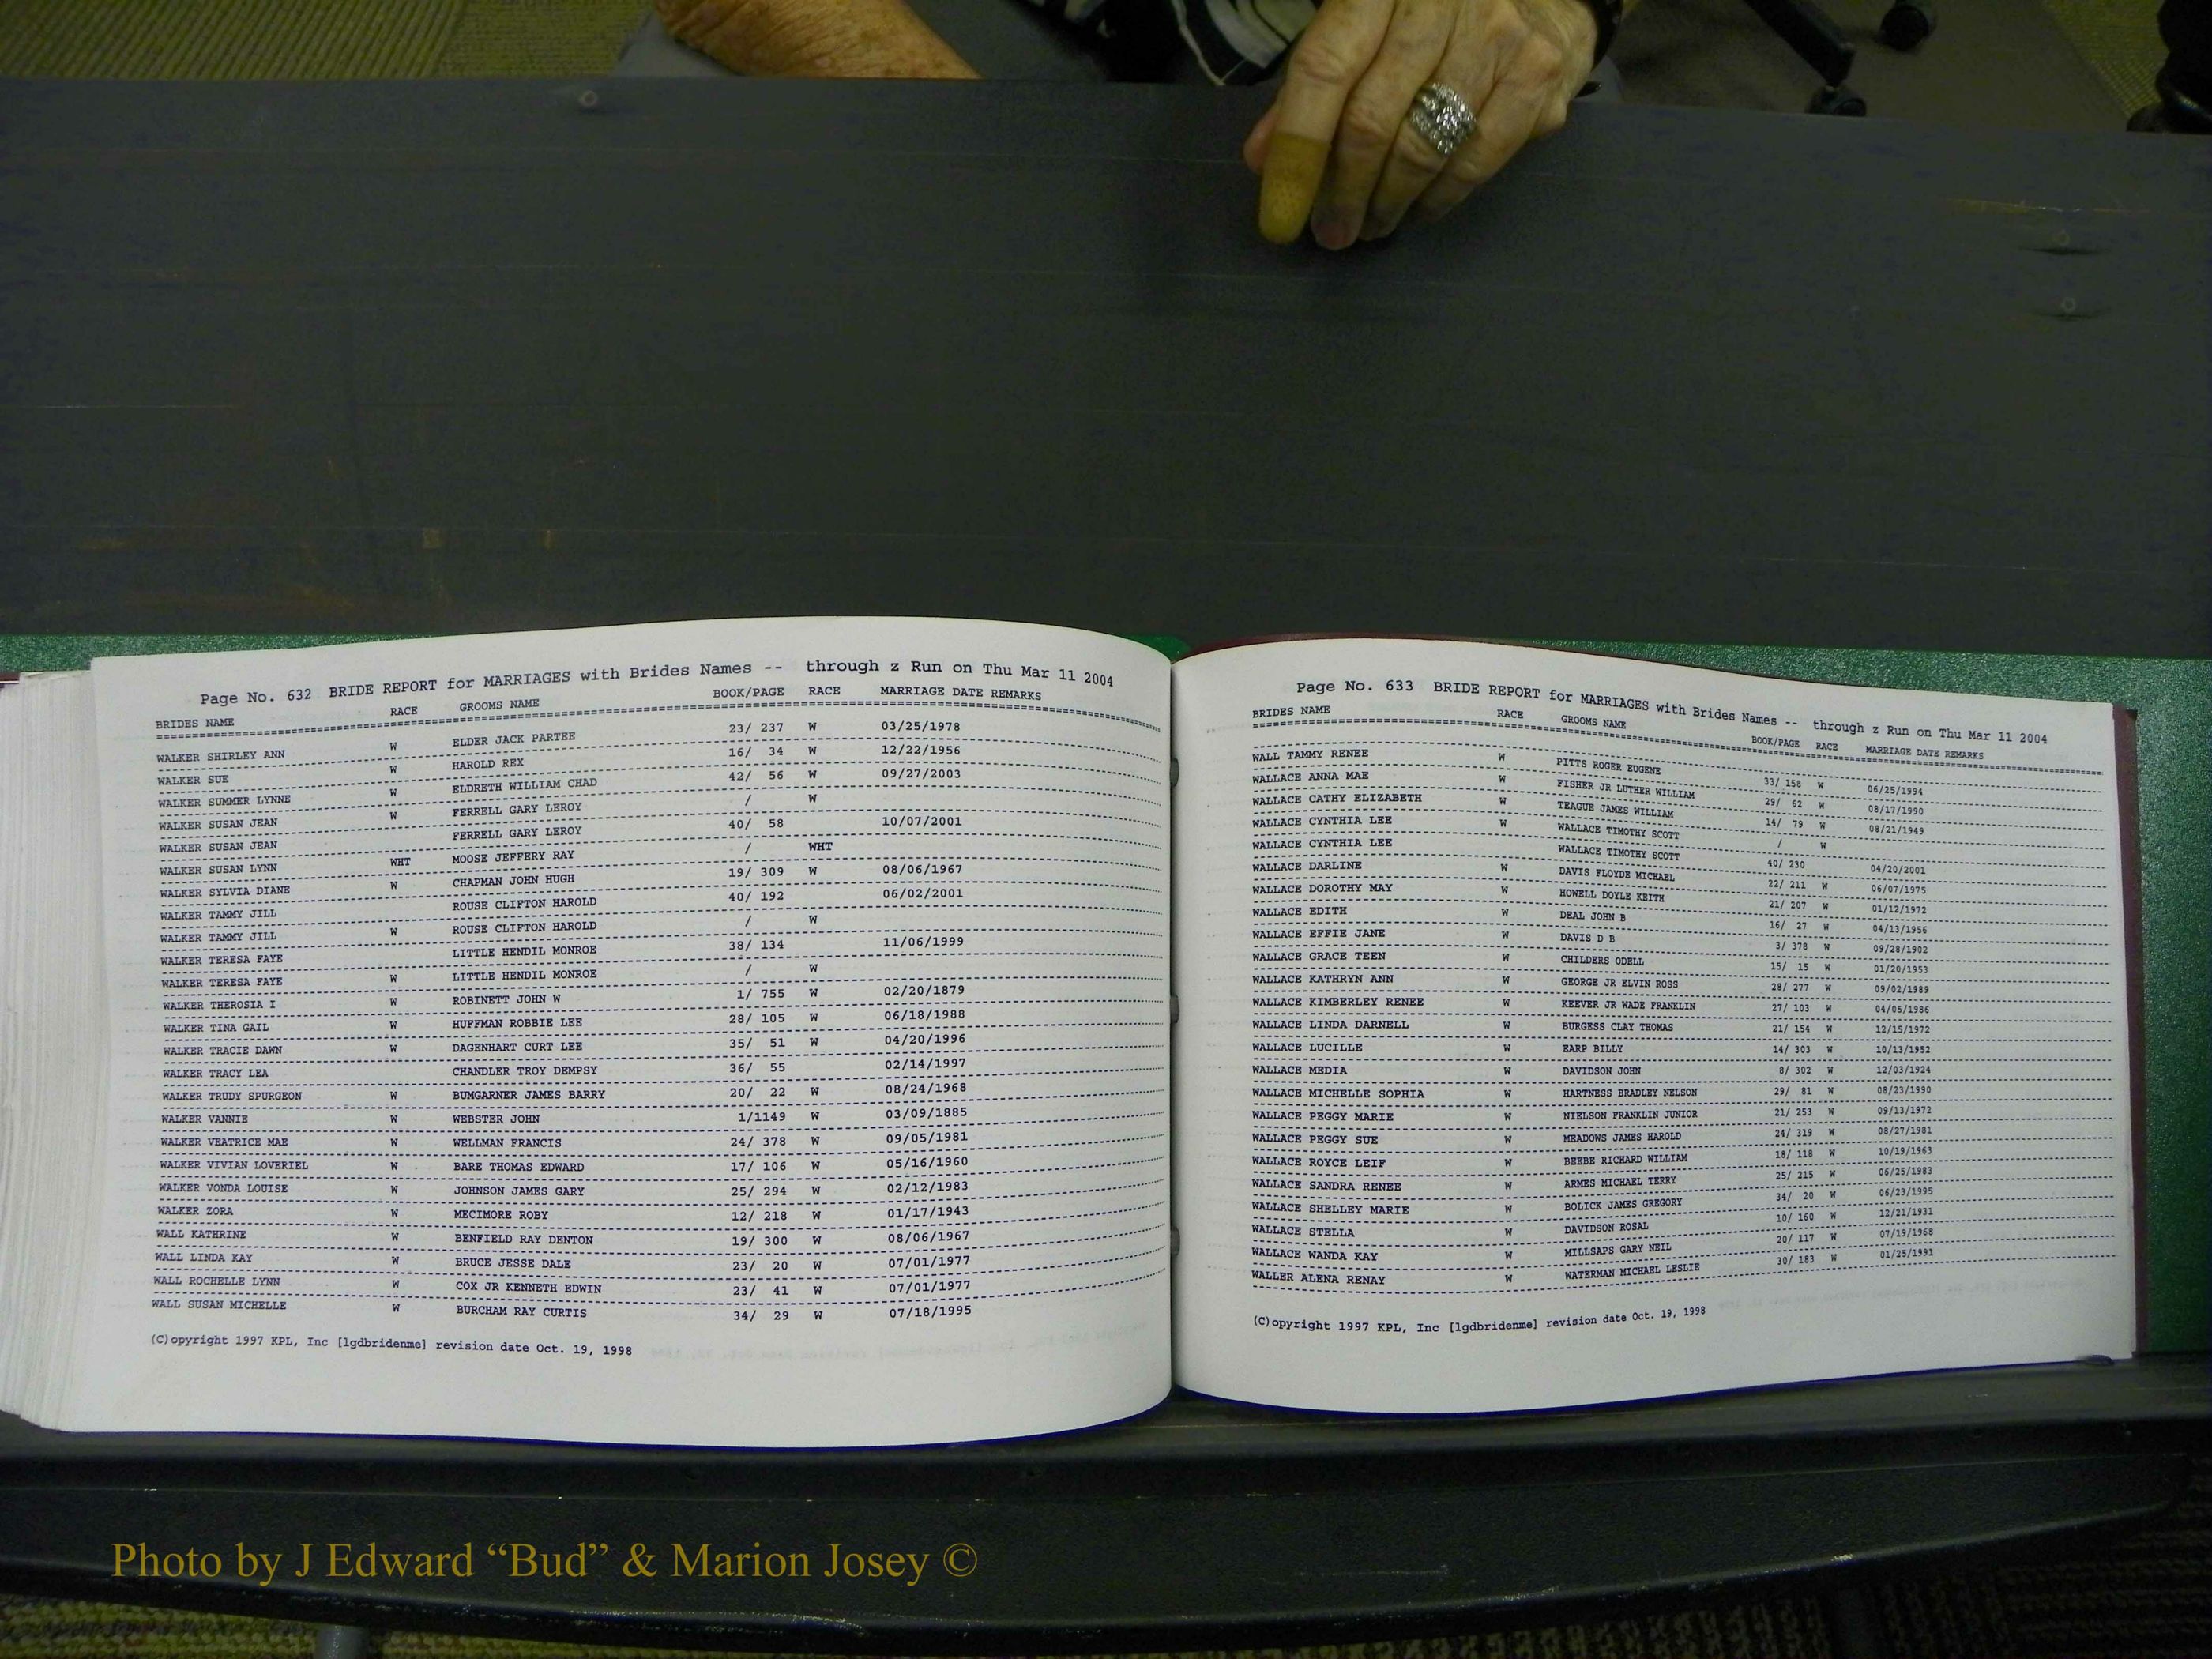 Page No. 632 BRIDE REPORT for MARRIAGES with Brides Names -- through z Run on Thu Mar 11 2004
BRIDES NAME RACE GROOMS NAME BOOK/PAGE RACE MARRIAGE DATE REMARKS
WALKER SHIRLEY ANN W ELDER JACK PARTEE 23/ 237 W 03/25/1978
WALKER SUE W HAROLD REX 16/ 34 W 12/22/1956
WALKER SUMMER LYNNE W ELDRETH WILLIAM CHAD 42/ 56 W 09/27/2003
WALKER SUSAN JEAN W FERRELL GARY LEROY / W
WALKER SUSAN JEAN FERRELL GARY LEROY 40/ 58 10/07/2001
WALKER SUSAN LYNN WHT MOOSE JEFFERY RAY / WHT
WALKER SYLVIA DIANE W CHAPMAN JOHN HUGH 19/ 309 W 08/06/1967
WALKER TAMMY JILL ROUSE CLIFTON HAROLD 40/ 192 06/02/2001
WALKER TAMMY JILL W ROUSE CLIFTON HAROLD / W
WALKER TERESA FAYE LITTLE HENDIL MONROE 38/ 134 11/06/1999
WALKER TERESA FAYE W LITTLE HENDIL MONROE / W
WALKER THEROSIA I W ROBINETT JOHN W 1/ 755 W 02/20/1879
WALKER TINA GAIL W HUFFMAN ROBBIE LEE 28/ 105 W 06/18/1988
WALKER TRACIE DAWN W DAGENHART CURT LEE 35/ 51 W 04/20/1996
WALKER TRACY LEA CHANDLER TROY DEMPSY 36/ 55 02/14/1997
WALKER TRUDY SPURGEON W BUMGARNER JAMES BARRY 20/ 22 W 08/24/1968
WALKER VANNIE W WEBSTER JOHN 1/1149 W 03/09/1885
WALKER VEATRICE MAE W WELLMAN FRANCIS 24/ 378 W 09/05/1981
WALKER VIVIAN LOVERIEL W BARE THOMAS EDWARD 17/ 106 W 05/16/1960
WALKER VONDA LOUISE W JOHNSON JAMES GARY 25/ 294 W 02/12/1983
WALKER ZORA W MECIMORE ROBY 12/ 218 W 01/17/1943
WALL KATHRINE W BENFIELD RAY DENTON 19/ 300 W 08/06/1967
WALL LINDA KAY W BRUCE JESSE DALE 23/ 20 W 07/01/1977
WALL ROCHELLE LYNN W COX JR KENNETH EDWIN 23/ 41 W 07/01/1977
WALL SUSAN MICHELLE W BURCHAM RAY CURTIS 34/ 29 W 07/18/1995
(C)opyright 1997 KPL, Inc [lgdbridenme] revision date Oct. 19, 1998
Page No. 633 BRIDE REPORT for MARRIAGES with Brides Names -- through z Run on Thu Mar 11 2004
BRIDES NAME RACE GROOMS NAME BOOK/PAGE RACE MARRIAGE DATE REMARKS
WALL TAMMY RENEE W PITTS ROGER EUGENE 33/ 158 W 06/25/1994
WALLACE ANNA MAE W FISHER JR LUTHER WILLIAM 29/ 62 W 08/17/1990
WALLACE CATHY ELIZABETH W TEAGUE JAMES WILLIAM 14/ 79 W 08/21/1949
WALLACE CYNTHIA LEE W WALLACE TIMOTHY SCOTT / W
WALLACE CYNTHIA LEE WALLACE TIMOTHY SCOTT 40/ 230 04/20/2001
WALLACE DARLINE W DAVIS FLOYDE MICHAEL 22/ 211 W 06/07/1975
WALLACE DOROTHY MAY W HOWELL DOYLE KEITH 21/ 207 W 01/12/1972
WALLACE EDITH W DEAL JOHN B 16/ 27 W 04/13/1956
WALLACE EFFIE JANE W DAVIS D B 3/ 378 W 09/28/1902
WALLACE GRACE TEEN W CHILDERS ODELL 15/ 15 W 01/20/1953
WALLACE KATHRYN ANN W GEORGE JR ELVIN ROSS 28/ 277 W 09/02/1989
WALLACE KIMBERLEY RENEE W KEEVER JR WADE FRANKLIN 27/ 103 W 04/05/1986
WALLACE LINDA DARNELL W BURGESS CLAY THOMAS 21/ 154 W 12/15/1972
WALLACE LUCILLE W EARP BILLY 14/ 303 W 10/13/1952
WALLACE MEDIA W DAVIDSON JOHN 8/ 302 W 12/03/1924
WALLACE MICHELLE SOPHIA W HARTNESS BRADLEY NELSON 29/ 81 W 08/23/1990
WALLACE PEGGY MARIE W NIELSON FRANKLIN JUNIOR 21/ 253 W 09/13/1972
WALLACE PEGGY SUE W MEADOWS JAMES HAROLD 24/ 319 W 08/27/1981
WALLACE ROYCE LEIF W BEEBE RICHARD WILLIAM 18/ 118 W 10/19/1963
WALLACE SANDRA RENEE W ARMES MICHAEL TERRY 25/ 215 W 06/25/1983
WALLACE SHELLEY MARIE W BOLICK JAMES GREGORY 34/ 20 W 06/23/1995
WALLACE STELLA W DAVIDSON ROSAL 10/ 160 W 12/21/1931
WALLACE WANDA KAY W MILLSAPS GARY NEIL 20/ 117 W 07/19/1968
WALLER ALENA RENAY W WATERMAN MICHAEL LESLIE 30/ 183 W 01/25/1991
(C)opyright 1997 KPL, Inc [lgdbridenme] revision date Oct. 19, 1998
Photo by J Edward “Bud” & Marion Josey ©